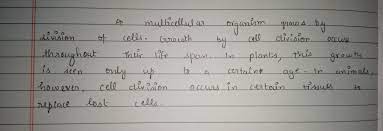 A multicellular organism grows by
division of cells. Growth by cell division occurs
throughout their life span. In plants, this growth
is seen only up to a certaine age. In animals,
however, cell division occurs in certain tissues to
replace lost cells.